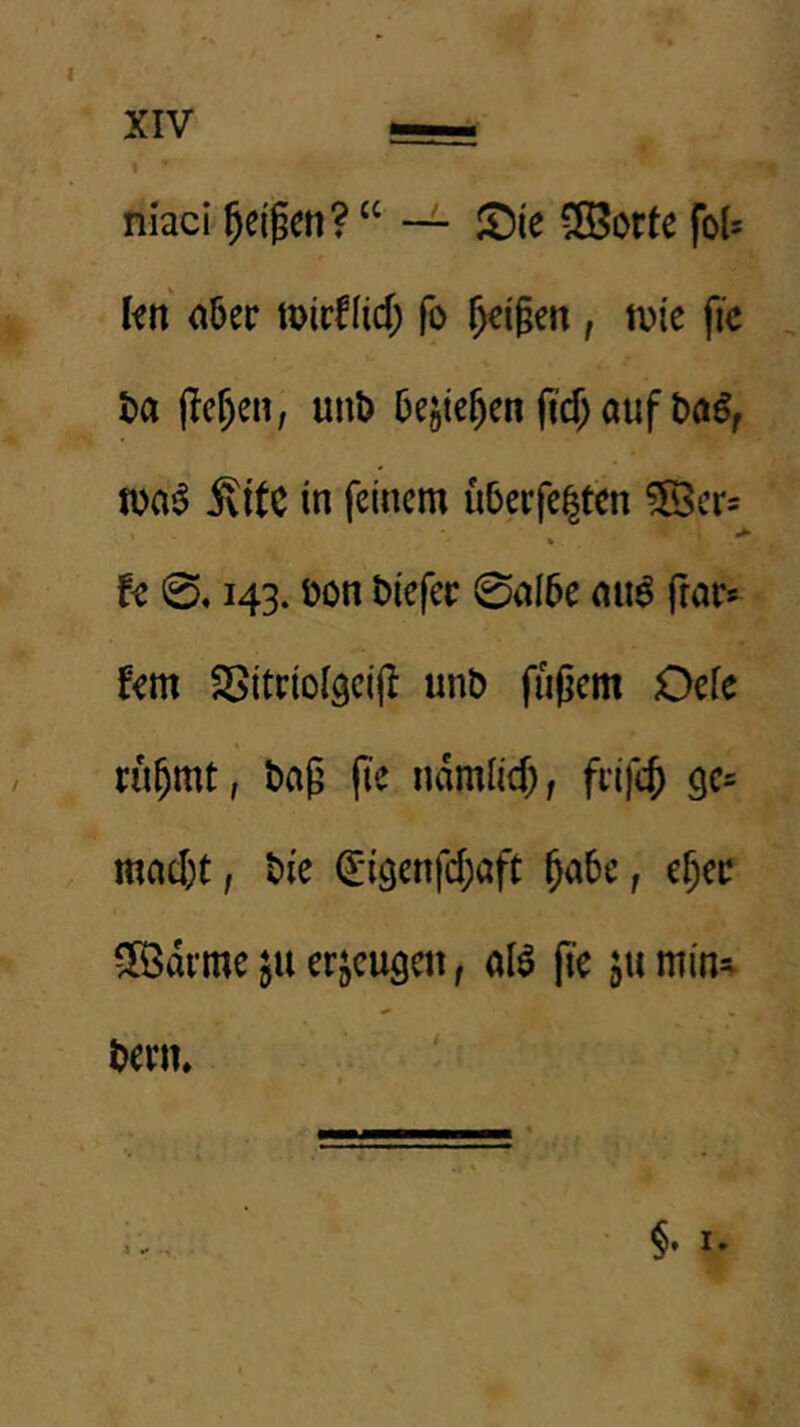 XIV
niaci heißen? “ — Die Worte sol-
len aber wirklich so heißen, wie sie
da stehen, und beziehen sich auf das,
was Kite in seinem übersetzten Wer-
ke S. 143. von dieser Salbe aus star-
kem Vitriolgeist und süßem Oele
rühmt, daß sie nämlich, frisch ge-
macht, die Eigenschaft habe, eher
Wärme zu erzeugen, als sie zu min-
dern.
§. 1.